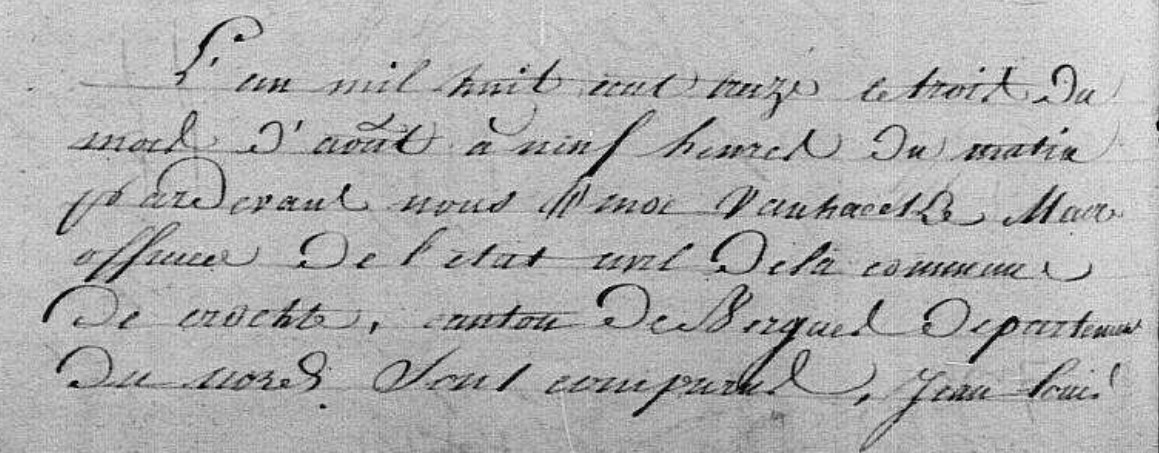 L'an mil huit cent treize le trois du
mois d'août à neuf heures du matin
pardevant nous Maire
officier de l'état civil de la commune
de crochte, canton de Bergues departement
du nord. Sont comparus, Jean Louis